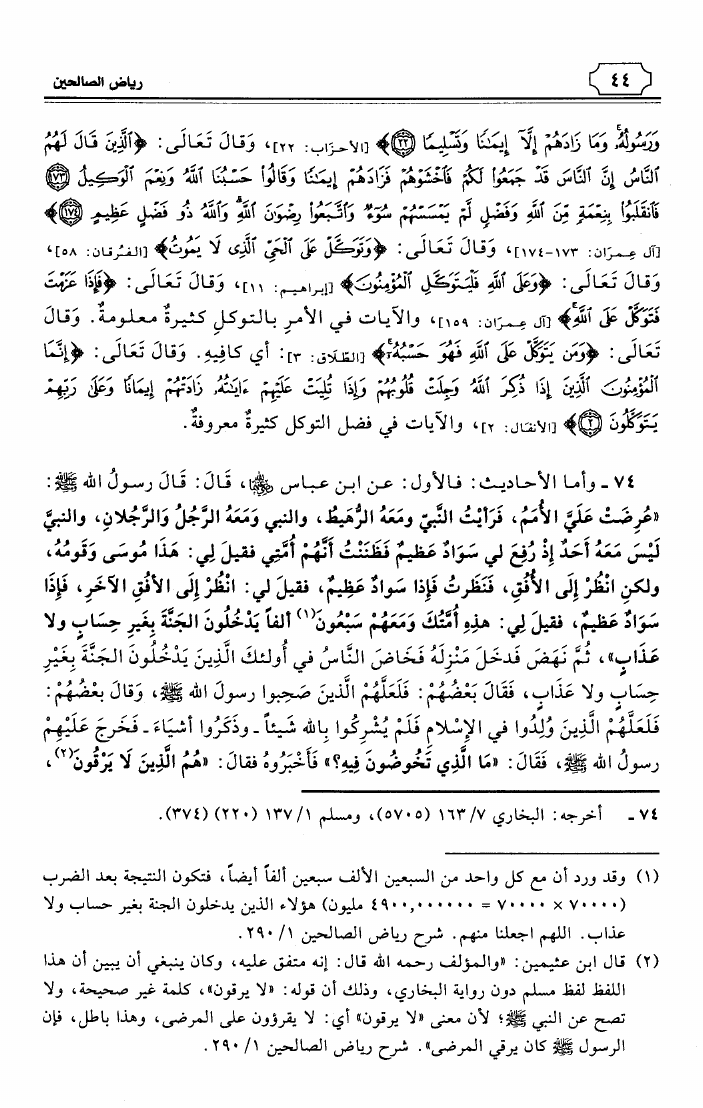 ٤٤
رياض الصالحين
وَرَسُولُهُۥ وَمَا زَادَهُمْ إِلَّآ إِيمَٰنًا وَتَسْلِيمًا ٢٢﴾ [الأحزاب: ٢٢]، وَقالَ تَعَالَى: ﴿الَّذِينَ قَالَ لَهُمُ
النَّاسُ إِنَّ النَّاسَ قَدْ جَمَعُوا لَكُمْ فَاخْشَوْهُمْ فَزَادَهُمْ إِيمَٰنًا وَقَالُوا حَسْبُنَا اللَّهُ وَنِعْمَ الْوَكِيلُ ١٧٣
فَانقَلَبُوا بِنِعْمَةٍ مِّنَ اللَّهِ وَفَضْلٍ لَّمْ يَمْسَسْهُمْ سُوٓءٌ وَاتَّبَعُوا رِضْوَٰنَ اللَّهِ وَاللَّهُ ذُو فَضْلٍ عَظِيمٍ ١٧٤﴾
[آل عِمرَان: ١٧٣-١٧٤]، وَقالَ تَعَالَى: ﴿وَتَوَكَّلْ عَلَى الْحَيِّ الَّذِى لَا يَمُوتُ﴾ [الفُرقان: ٥٨]،
وَقَالَ تَعَالَى: ﴿وَعَلَى اللَّهِ فَلْيَتَوَكَّلِ الْمُؤْمِنُونَ﴾ [إبراهيم: ١١]، وَقالَ تَعَالَى: ﴿فَإِذَا عَزَمْتَ
فَتَوَكَّلْ عَلَى اللَّهِ﴾ [آل عِمرَان: ١٥٩]، والآيات في الأمرِ بالتوكلِ كثيرةٌ معلومةٌ. وَقالَ
تَعَالَى: ﴿وَمَن يَتَوَكَّلْ عَلَى اللَّهِ فَهُوَ حَسْبُهُۥٓ﴾ [الطّلَاق: ٣]: أي كافِيهِ. وَقالَ تَعَالَى: ﴿إِنَّمَا
الْمُؤْمِنُونَ الَّذِينَ إِذَا ذُكِرَ اللَّهُ وَجِلَتْ قُلُوبُهُمْ وَإِذَا تُلِيَتْ عَلَيْهِمْ ءَايَٰتُهُۥ زَادَتْهُمْ إِيمَانًا وَعَلَىٰ رَبِّهِمْ
يَتَوَكَّلُونَ ٢﴾ [الأنفَال: ٢]، والآيات في فضل التوكل كثيرةٌ معروفةٌ.
٧٤ ـ وأما الأحاديث: فالأول: عن ابن عباس ﵄، قَالَ: قَالَ رسولُ الله ﷺ:
«عُرِضَتْ عَلَيَّ الأُمَمُ، فَرَأيْتُ النَّبيّ ومَعَهُ الرُّهَيطُ، والنبي وَمَعَهُ الرَّجُلُ وَالرَّجُلانِ، والنبيَّ
لَيْسَ مَعَهُ أَحَدٌ إذْ رُفِعَ لي سَوَادٌ عَظيمٌ فَظَنَنْتُ أَنَّهُمْ أُمَّتِي فقيلَ لِي: هَذَا مُوسَى وَقَومُهُ،
ولكنِ انْظُرْ إِلَى الأُفُقِ، فَنَظَرتُ فَإِذا سَوادٌ عَظِيمٌ، فقيلَ لي: انْظُرْ إِلَى الأفُقِ الآخَرِ، فَإِذَا
سَوَادٌ عَظيمٌ، فقيلَ لِي: هذِهِ أُمَّتُكَ وَمَعَهُمْ سَبْعُونَ(١) ألفاً يَدْخُلُونَ الجَنَّةَ بِغَيرِ حِسَابٍ ولا
عَذَابٍ»، ثُمَّ نَهَضَ فَدخَلَ مَنْزِلَهُ فَخَاضَ النَّاسُ في أُولئكَ الَّذِينَ يَدْخُلُونَ الجَنَّةَ بِغَيْرِ
حِسَابٍ ولا عَذَابٍ، فَقَالَ بَعْضُهُمْ: فَلَعَلَّهُمْ الَّذينَ صَحِبوا رسولَ الله ﷺ، وَقالَ بعْضُهُمْ:
فَلَعَلَّهُمْ الَّذِينَ وُلِدُوا في الإِسْلامِ فَلَمْ يُشْرِكُوا بِالله شَيئاً ـ وذَكَرُوا أشْيَاءَ ـ فَخَرجَ عَلَيْهِمْ
رسولُ الله ﷺ، فَقَالَ: «مَا الَّذِي تَخُوضُونَ فِيهِ؟» فَأَخْبَرُوهُ فقالَ: «هُمُ الَّذِينَ لَا يَرْقُونَ(٢)،
٧٤ ـ أخرجه: البخاري ١٦٣/٧ (٥٧٠٥)، ومسلم ١٣٧/١ (٢٢٠) (٣٧٤).
(١) وقد ورد أن مع كل واحد من السبعين الألف سبعين ألفاً أيضاً، فتكون النتيجة بعد الضرب
(٧٠٠٠٠ × ٧٠٠٠٠ = ٤٩٠٠,٠٠٠٠٠٠ مليون) هؤلاء الذين يدخلون الجنة بغير حساب ولا
عذاب. اللهم اجعلنا منهم. شرح رياض الصالحين ٢٩٠/١.
(٢) قال ابن عثيمين: «والمؤلف رحمه الله قال: إنه متفق عليه، وكان ينبغي أن يبين أن هذا
اللفظ لفظ مسلم دون رواية البخاري، وذلك أن قوله: «لا يرقون»، كلمة غير صحيحة، ولا
تصح عن النبي ﷺ؛ لأن معنى «لا يرقون» أي: لا يقرؤون على المرضى، وهذا باطل، فإن
الرسول ﷺ كان يرقي المرضى». شرح رياض الصالحين ٢٩٠/١.